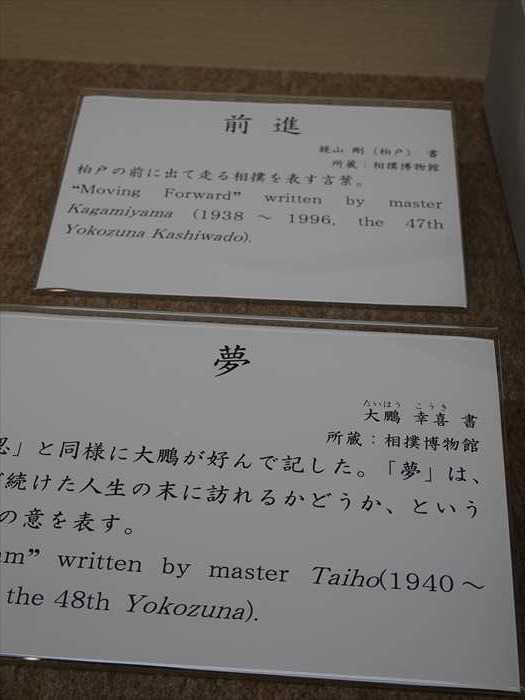 前進
鏡山 剛（柏戸） 書
所蔵：相撲博物館
柏戸の前に出て走る相撲を表す言葉。
“Moving Forward” written by master
Kagamiyama (1938 ～ 1996, the 47th
Yokozuna Kashiwado).
夢
たいほう こうき
大鵬 幸喜 書
所蔵：相撲博物館
」と同様に大鵬が好んで記した。「夢」は、
続けた人生の末に訪れるかどうか、という
の意を表す。
am” written by master Taiho(1940～
the 48th Yokozuna).